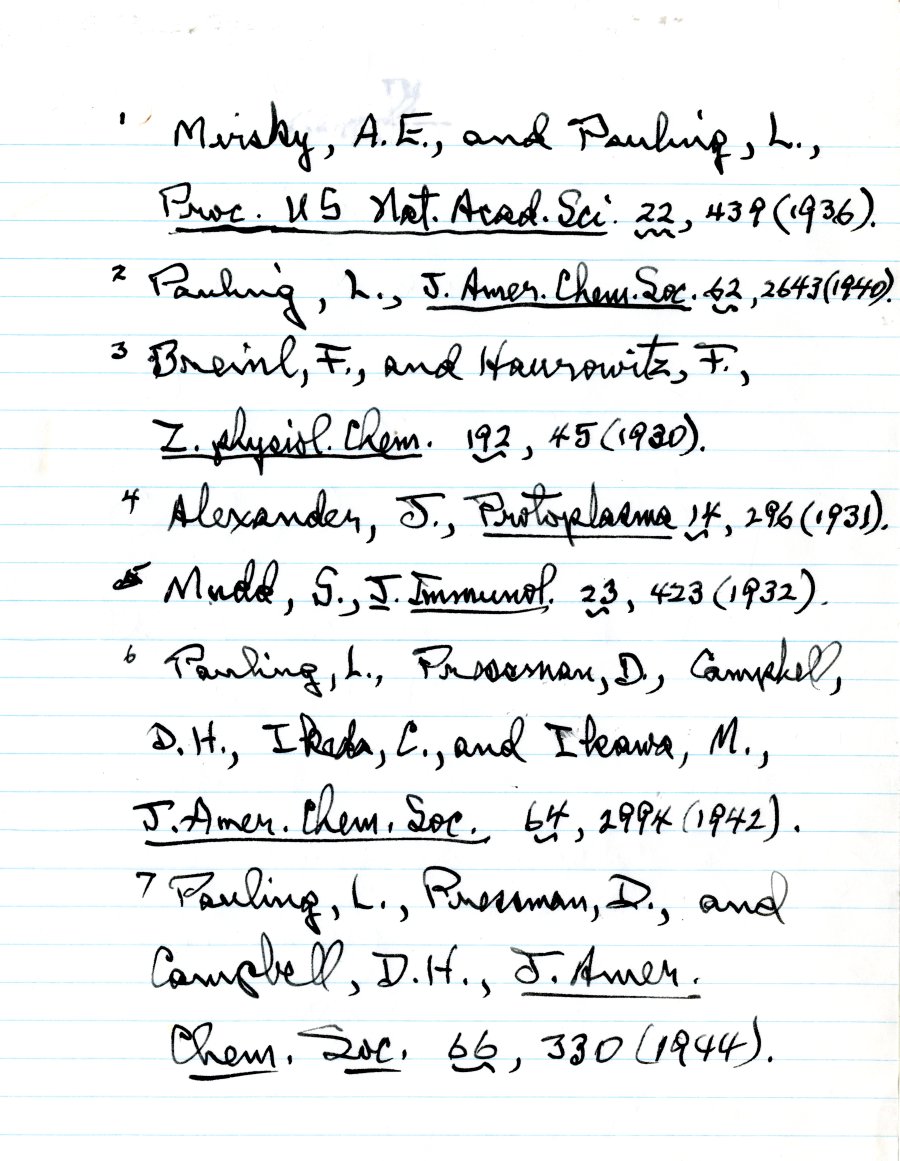 1 Mirsky, A.E., and Pauling, L.,
Proc. US Nat. Acad. Sci. 22, 439 (1936).
2 Pauling, L., J. Amer. Chem. Soc. 62, 2643 (1940).
3 Breinl, F., and Haurowitz, F.,
Z. physiol. Chem. 192, 45 (1930).
4 Alexander, J., Protoplasma 14, 296 (1931).
5 Mudd, S., J. Immunol. 23, 423 (1932).
6 Pauling, L., Pressman, D., Campbell,
D.H., Ikeda, C., and Ikawa, M.,
J. Amer. Chem. Soc. 64, 2994 (1942).
7 Pauling, L., Pressman, D., and
Campbell, D.H., J. Amer.
Chem. Soc. 66, 330 (1944).